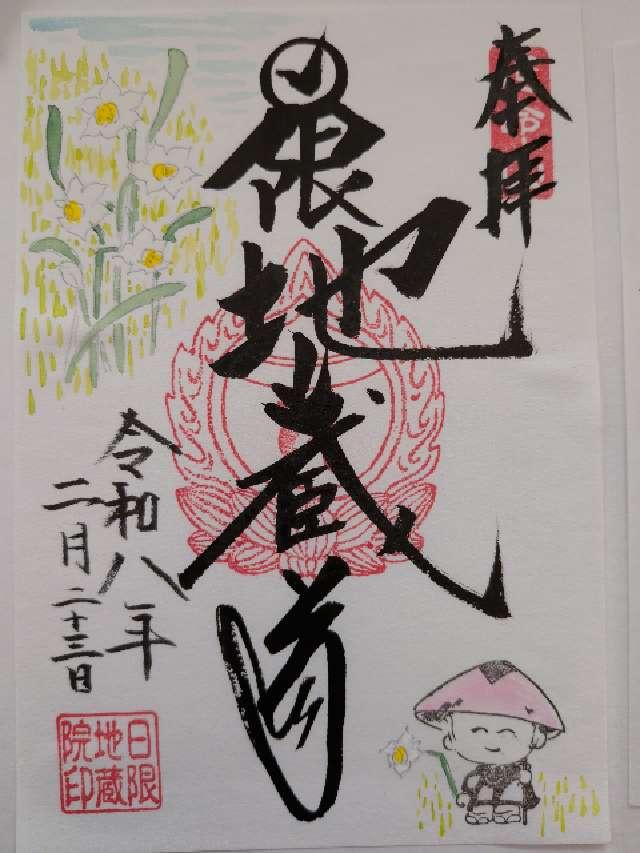 奉拝
日限地蔵尊
令和八年
二月二十三日
日限
地蔵
院印